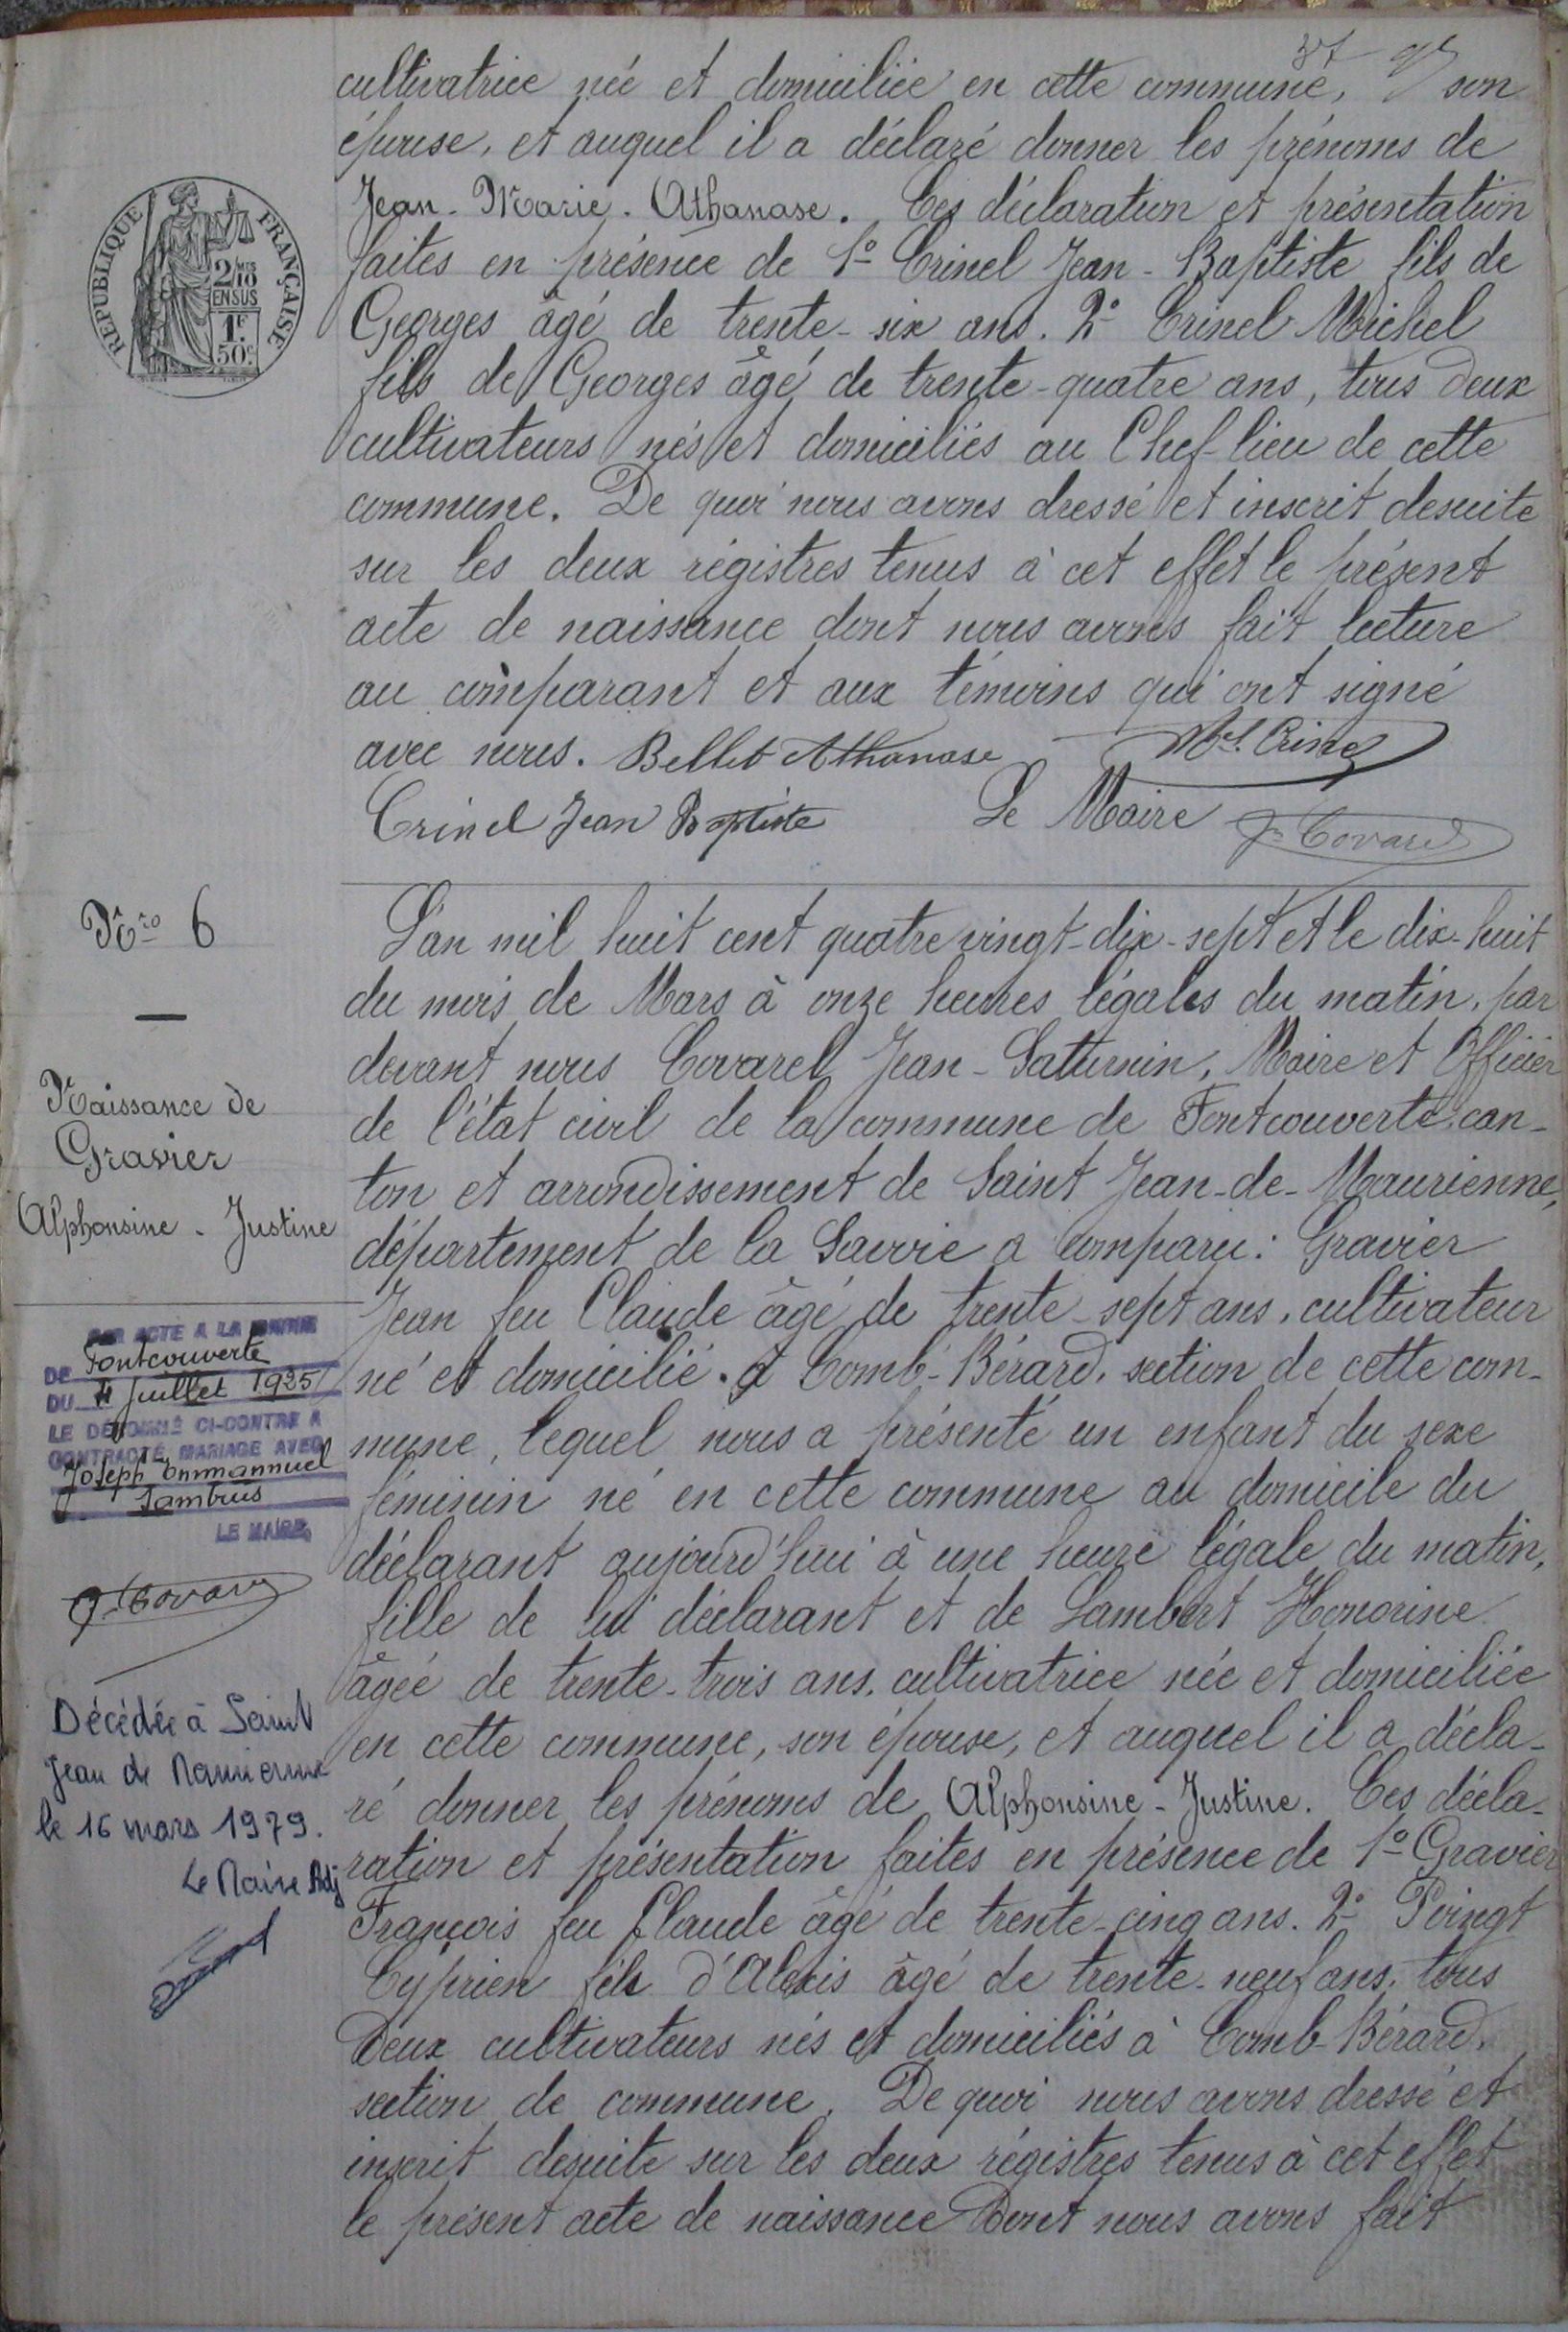 cultivatrice née et domiciliée en cette commune, son
épouse, et auquel il a déclaré donner les prénoms de
Jean-Marie-Athanase. Ces déclaration et présentation
faites en présence de 1° Crinel Jean-Baptiste fils de
Georges âgé de trente-six ans. 2° Crinel Michel
fils de Georges âgé de trente-quatre ans, tous deux
cultivateurs nés et domiciliés au Chef-lieu de cette
commune. De quoi nous avons dressé et inscrit desuite
sur les deux régistres tenus à cet effet le présent
acte de naissance dont nous avons fait lecture
au comparant et aux témoins qui ont signé
avec nous. Bellet Athanase Mel. Crinel
Crinel Jean Baptiste Le Maire J. Covarel
REPUBLIQUE FRANÇAISE
2/10
EN SUS
1F
50c
Nro 6
Naissance de
Gravier
Alphonsine - Justine
PAR ACTE A LA MAIRIE
DE Fontcouverte
DU 4 juillet 1925
LE DÉNOMMÉ CI-CONTRE A
CONTRACTÉ MARIAGE AVEC
Joseph Emmannuel
Sambuis
LE MAIRE,
J. Covarel
Décédée à Saint
Jean de Maurienne
le 16 mars 1979.
Le Maire Adj
L'an mil huit cent quatre vingt-dix-sept et le dix-huit
du mois de Mars à onze heures légales du matin, par
devant nous Covarel Jean-Saturnin, Maire et Officier
de l'état civil de la commune de Fontcouverte can-
ton et arrondissement de Saint Jean-de-Maurienne,
département de la Savoie a comparu: Gravier
Jean feu Claude âgé de trente-sept ans, cultivateur
né et domicilié à Comb-Bérard, section de cette com-
mune, lequel nous a présenté un enfant du sexe
féminin né en cette commune au domicile du
déclarant aujourd'hui à une heure légale du matin,
fille de lui déclarant et de Lambert Honorine
âgée de trente-trois ans, cultivatrice née et domiciliée
en cette commune, son épouse, et auquel il a décla-
ré donner les prénoms de Alphonsine-Justine. Ces décla-
ration et présentation faites en présence de 1° Gravier
François feu Claude âgé de trente-cinq ans. 2° Poingt
Cyprien fils d'Alexis âgé de trente-neuf ans, tous
Deux cultivateurs nés et domiciliés à Comb-Bérard,
section de commune. De quoi nous avons dressé et
inscrit desuite sur les deux régistres tenus à cet effet
le présent acte de naissance Dont nous avons fait